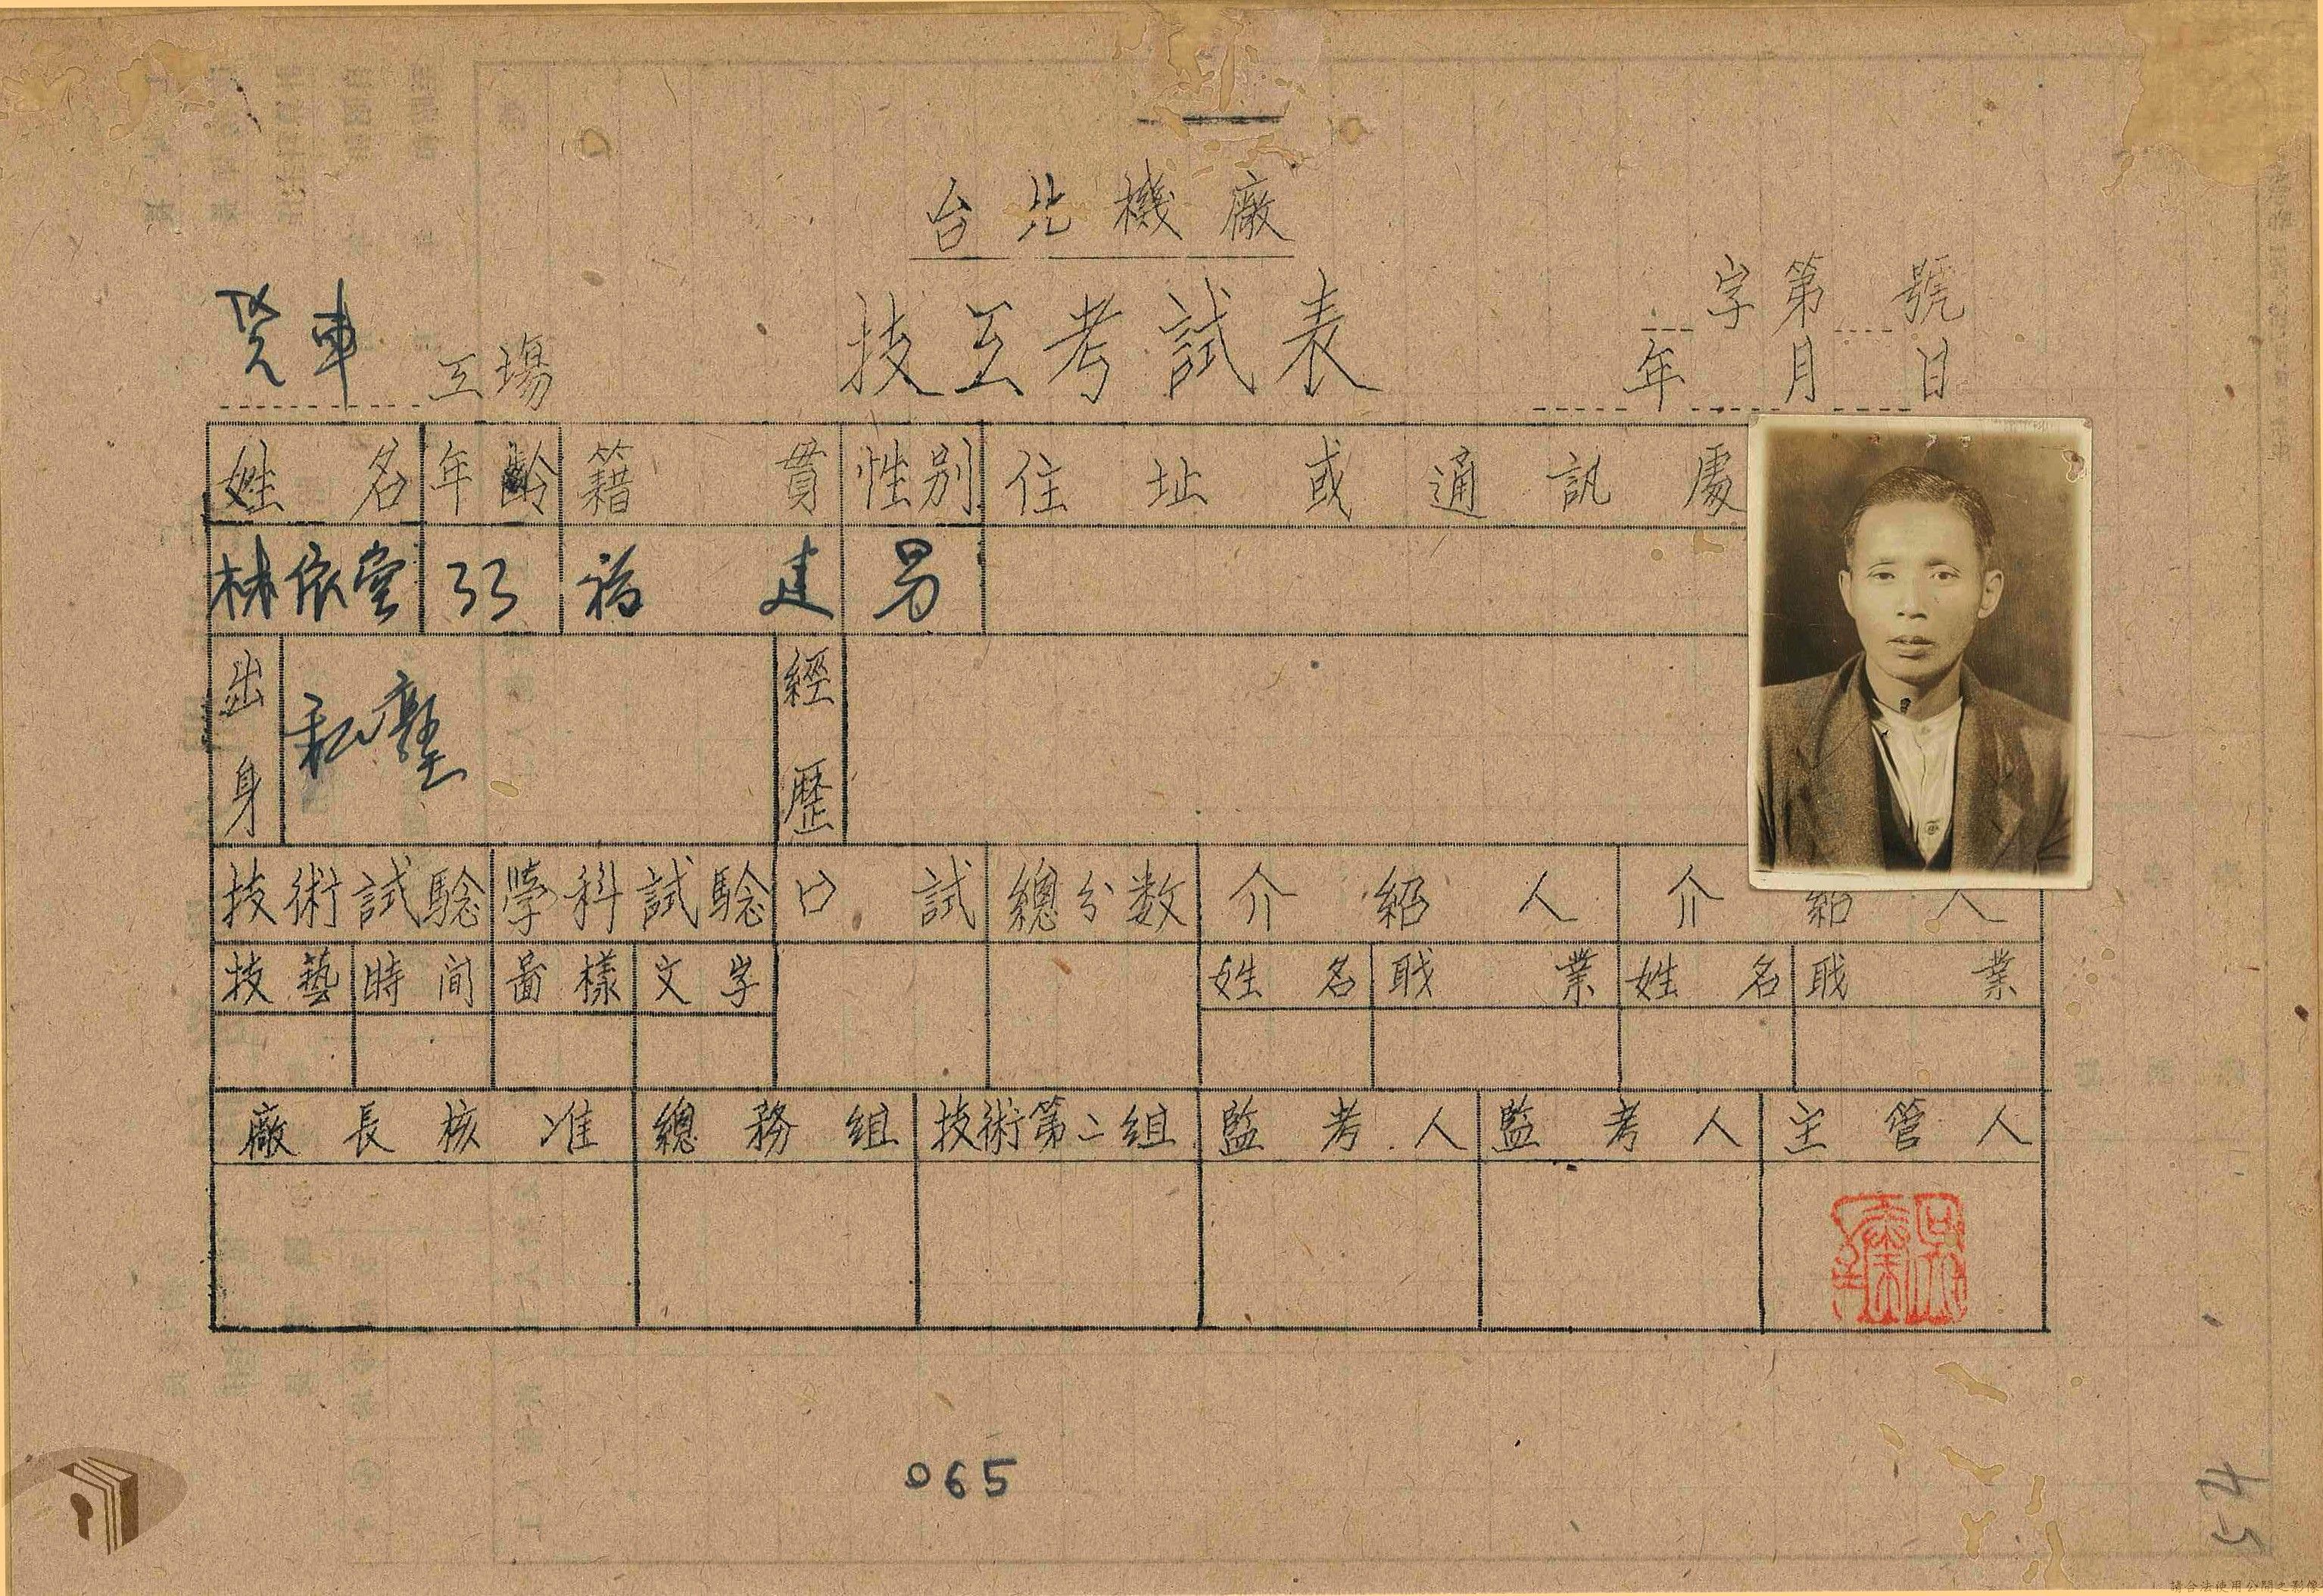 台北機廠
技工考試表
字第 號
年 月 日
貨車 工場
姓名 年齡 籍貫 性別 住址或通訊處
林依堂 33 福建 男
出身 私塾 經歷
技術試驗 學科試驗 口試 總分数 介紹人 介紹人
技藝 時間 圖樣 文字 姓名 職業 姓名 職業
廠長核准 總務組 技術第二組 監考人 監考人 主管人
065
45
請合法使用公開之影像